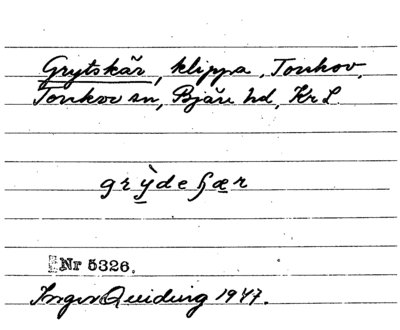 Grytskär, klippa, Torekov,
Torekov sn, Bjäre hd, Kr L.
grỳdeʂær
Nr 5326.
Inger Quiding 1947.